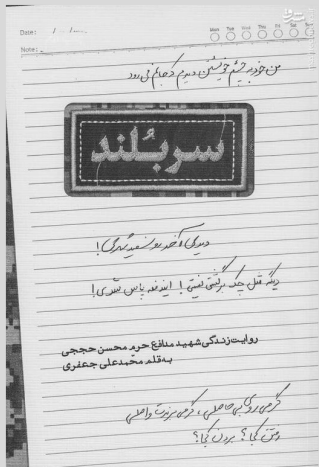 Date: / /
Mon Tue Wed Thu Fri Sat Sun
Note:
من خود به چشم خویشتن دیدم که جانم می‌رود
سربُلند
دیدی آخر رو سفید شدی!
دیگه مثل چک برگشتی نیستی! ایندفعه پاس شدی!
روایت زندگی شهید مدافع حرم محسن حججی
به قلم محمدعلی جعفری
کجا؟
کجا؟